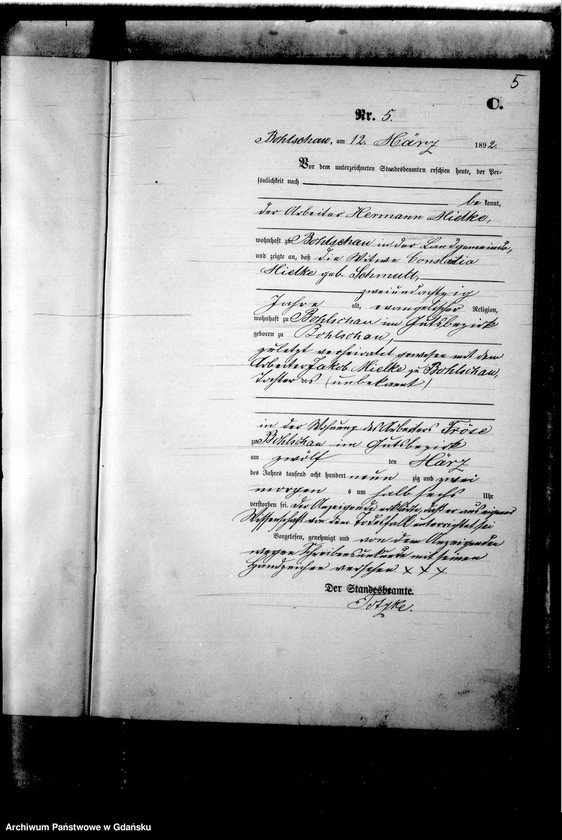 5
C.
Nr. 5.
Bohlschau, am 12. März 1892.
Vor dem unterzeichneten Standesbeamten erschien heute, der Per-
sönlichkeit nach
bekannt,
der Arbeiter Hermann Mielke,
wohnhaft zu Bohlschau in der Landgemeinde,
und zeigte an, daß die Witwe Constatia
Mielke geb. Schmult,
zweiundachtzig
Jahre alt, evangelischer Religion,
wohnhaft zu Bohlschau im Gutsbezirk
geboren zu Bohlschau,
zuletzt verheiratet gewesen mit dem
Arbeiter Jakob Mielke zu Bohlschau,
Tochter des (unbekannt)
in der Wohnung des Arbeiters Fröse
zu Bohlschau im Gutsbezirk
am zwölf ten März
des Jahres tausend acht hundert neunzig und zwei
morgens um halb sechs Uhr
verstorben sei. Der Anzeigende erklärte, daß er aus eigener
Wissenschaft von dem Todesfall unterrichtet sei
Vorgelesen, genehmigt und von dem Anzeigenden
wegen Schreibensunkunde mit seinen
Handzeichen versehen XXX
Der Standesbeamte.
Archiwum Państwowe w Gdańsku